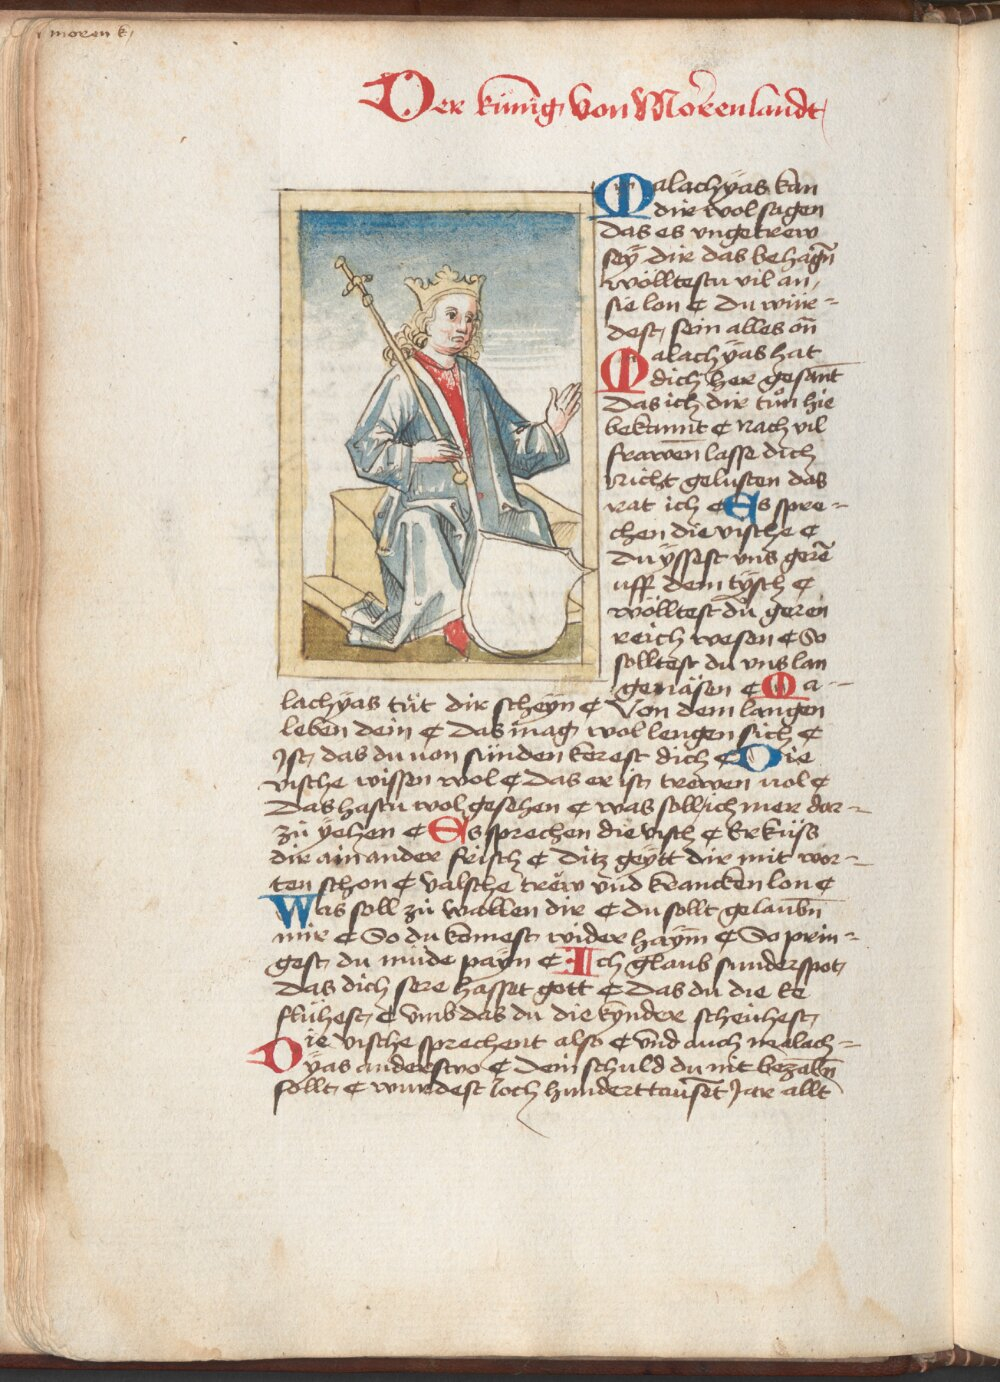 moren k
Der künig von Morenlandt
Malachyas kan
dir wol sagen
das es vngetrew
seÿ dir das behagn̄
wölltestu vil an
sie lon ¢ Du wür=
dest sein alles on̄
Malachyas hat
dich her gesānt
Das ich dir tůn hie
bekannt ¢ Nach vil
frawen lasse dich
nicht gelusten das
rat ich ¢ Es spre=
chen die vische ¢
Du ÿssest vns gerē
uff dem tÿsch ¢
wölltest du geren
reich wesen ¢ So
solltest du vns lan
genäsen ¢ Ma-
lachÿas tůt dir scheÿn ¢ Von dem langen
leben dein ¢ Das mag wol lengen sich ¢
Ist das du von sünden kerest dich ¢ Die
vische wissen wol ¢ Das er ist trewen uol ¢
Das hastu wol gesehen ¢ was soll ich mer dar=
zů ÿehen ¢ Es sprechen die visch ¢ Erküss
dir ain ander frisch ¢ Ditz geÿtt dir mit wor=
ten schon ¢ valsche trëw vnd krancken lon ¢
Was soll zů wallen dir ¢ du sollt gelaubn̄
mir ¢ So du komest wider haÿm ¢ So prin=
gest du müde paÿn ¢ Ich glaub sunder spot
Das dich sere hasset gott ¢ Das du die ee
flühest ¢ Vmb das du die kÿnder scheühest
Die vische sprechent also ¢ Vnd auch malach=
ÿas anderswo ¢ Dein schuld du nit bezaln̄
sollt ¢ wurdest joch hundert tausēt Jar allt